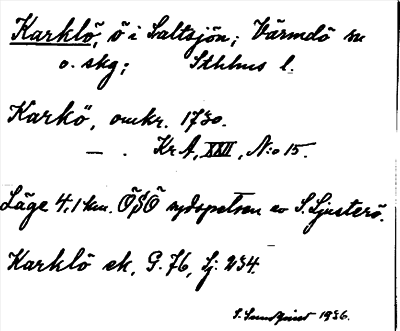 Karklö, ö i Saltsjön; Värmdö sn
o. skg; Sthlms l.
Karkö, omkr. 1730.
— . Kr A, XXII, N:o 15.
Läge 4,1 km. OSO sydspetsen av S. Ljusterö.
Karklö ek, G. 76, Lj: 234.
S. Sundqvist 1936.